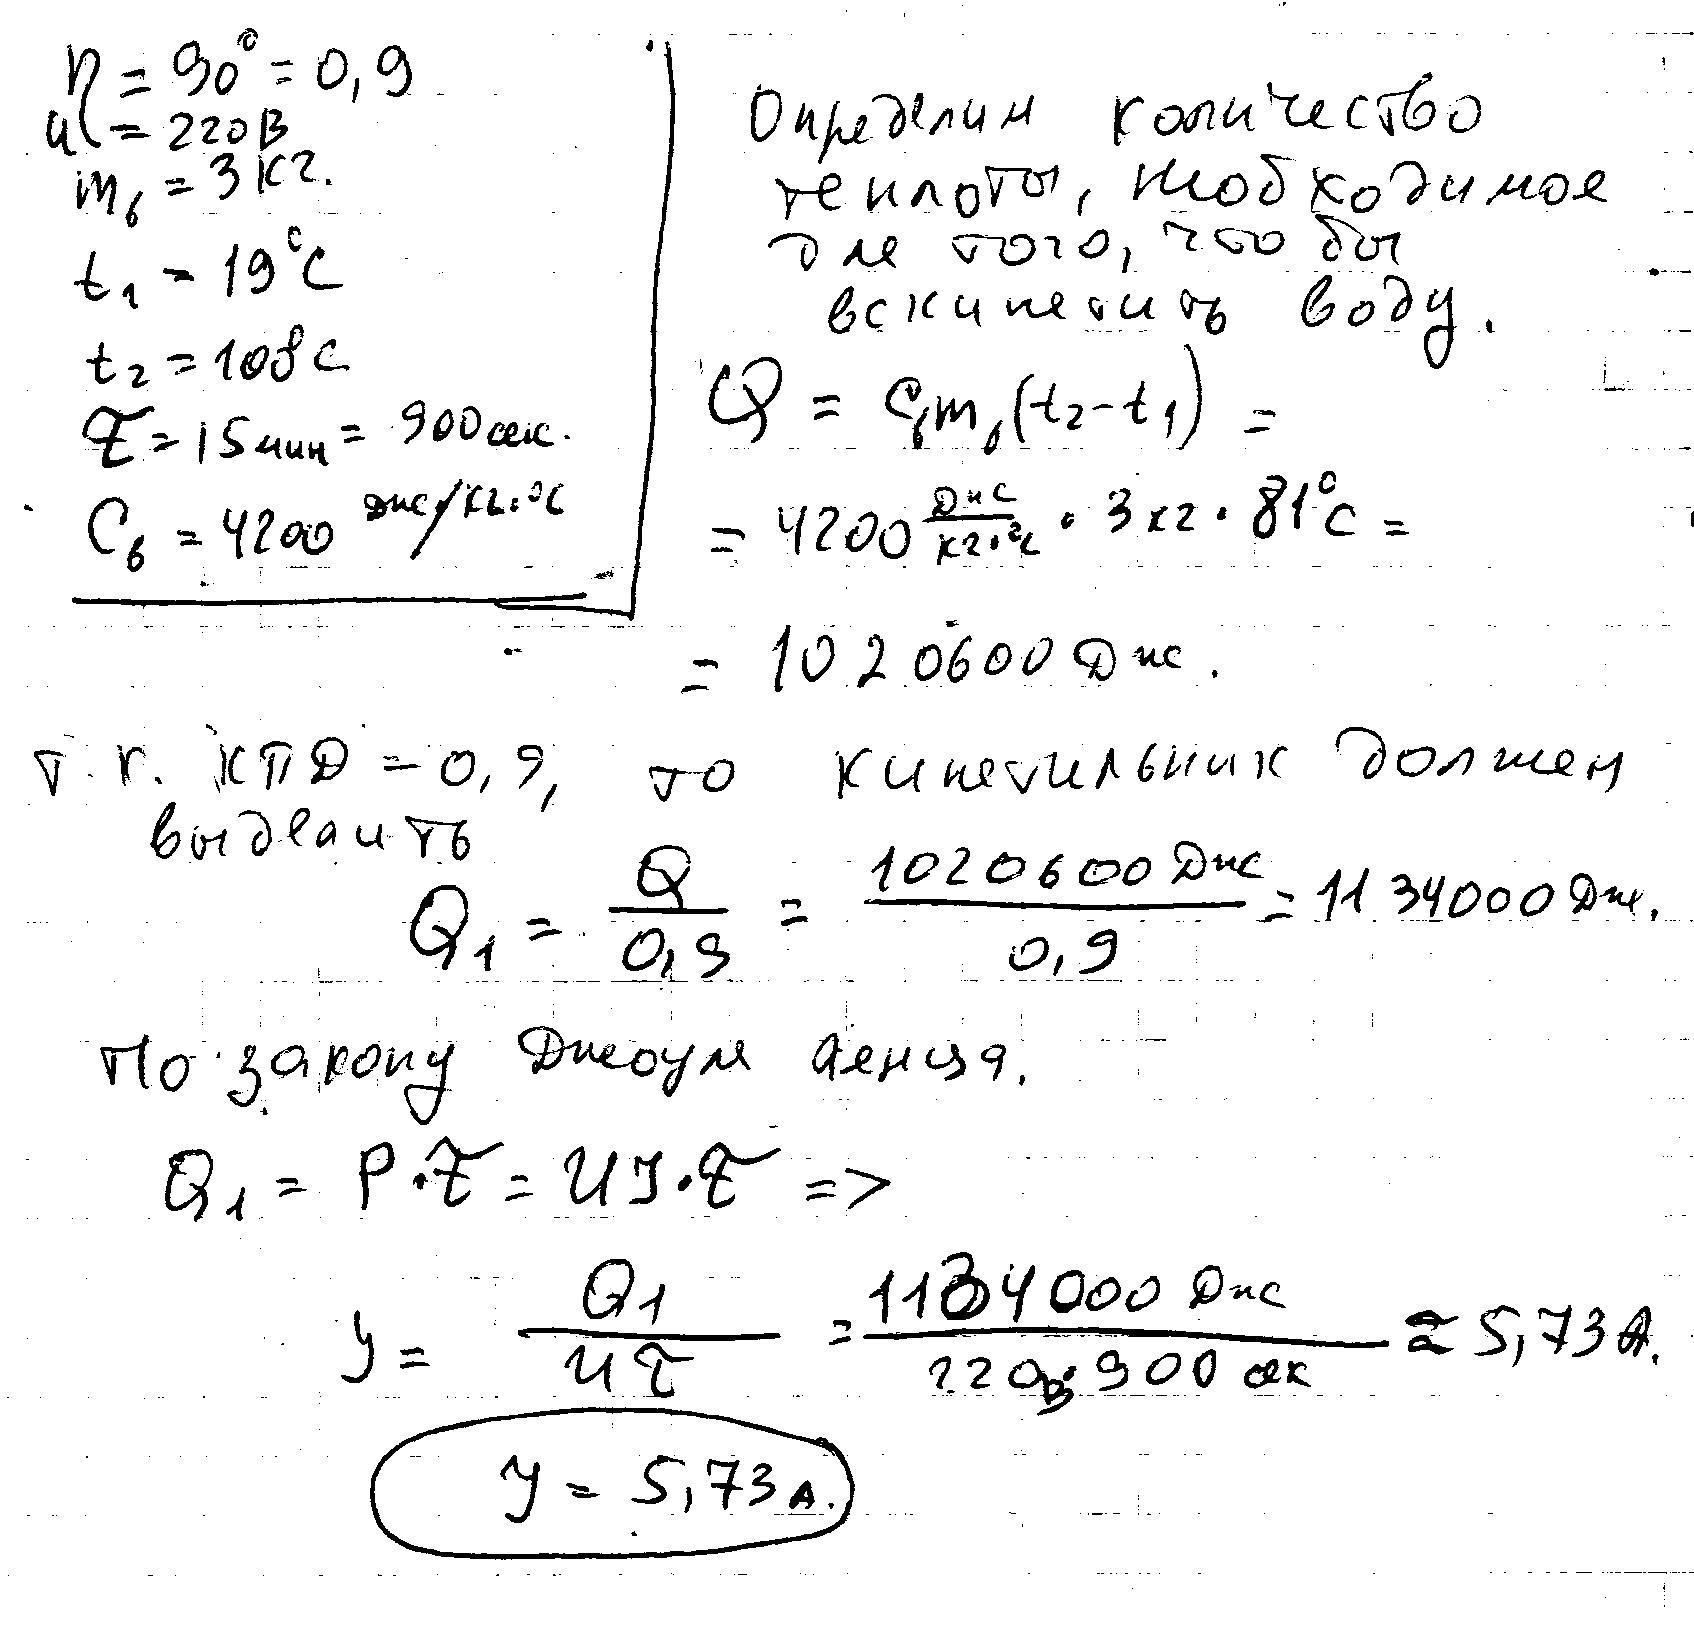 η = 90° = 0,9
U = 220 В
mв = 3 кг.
t1 = 19°C
t2 = 100°C
τ = 15 мин = 900 сек.
Cв = 4200 Дж/кг·°C
Определим количество
теплоты, необходимое
для того, что бы
вскипетить воду.
Q = Cвmв(t2-t1) =
= 4200 Дж/кг·°C · 3 кг · 81°C =
= 1020600 Дж.
т.к. КПД = 0,9, то кипетильник должен
выделить
Q1 = Q/0,9 = 1020600 Дж/0,9 = 1134000 Дж.
По закону Джоуля Ленца.
Q1 = P·τ = UJ·τ =>
J = Q1/Uτ = 1134000 Дж/220в·900 сек ≈ 5,73 А.
J = 5,73 А.